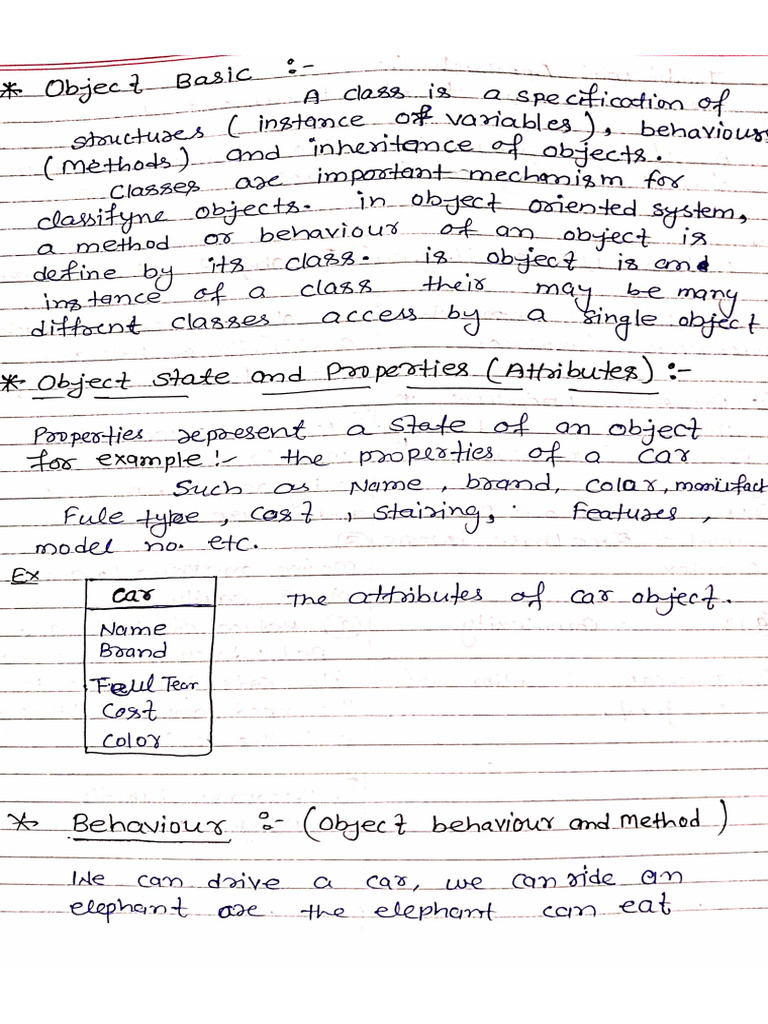 * Object Basic :-
A class is a specification of
structures ( instance of variables ), behaviours
(methods) and inheritance of objects.
Classes are important mechanism for
classifyne objects. in object oriented system,
a method or behaviour of an object is
define by its class. is object is and
instance of a class their may be many
diffrent classes access by a single object
* Object State and Properties (Attributes) :-
Properties represent a state of an object
for example :- the properties of a car
Such as Name, brand, colar, manufact
Fule type, cost, stairing, features,
model no. etc.
Ex
car
The attributes of car object.
Name
Brand
Cost
Color
* Behaviour :- (object behaviour and method)
We can drive a car, we can ride an
elephant are the elephant can eat